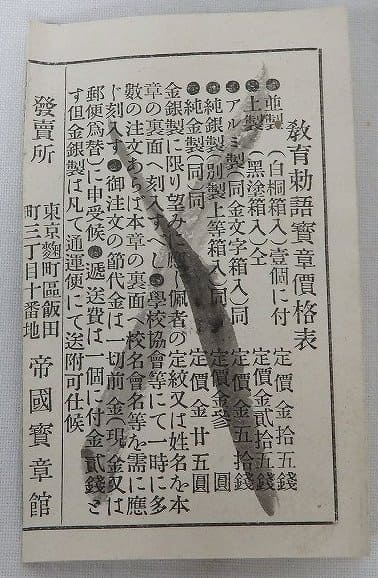 教育勅語寶章價格表
●並製（白桐箱入）壹個に付 定價金拾五錢
●上製（黑塗箱入）仝 定價金貳拾五錢
●アルミ製（同金文字箱入）同 定價金五拾錢
●純銀製（別製上等箱入）同 定價金參圓
●純金製（同）同 定價金廿五圓
金銀製に限り望みに應じ佩者の定紋又は姓名を本
章の裏面へ刻入すべし●學校協會等にて一時に多
數の注文あらば本章の裏面へ校名會名等を需に應
じ刻入す●御注文の節代金は一切前金（現金又は
郵便爲替）に申受候●遞送費は一個に付金貳錢と
す但金銀製は凡て通運便にて送附可仕候
發賣所 東京麴町區飯田
町三丁目十番地 帝國寶章館